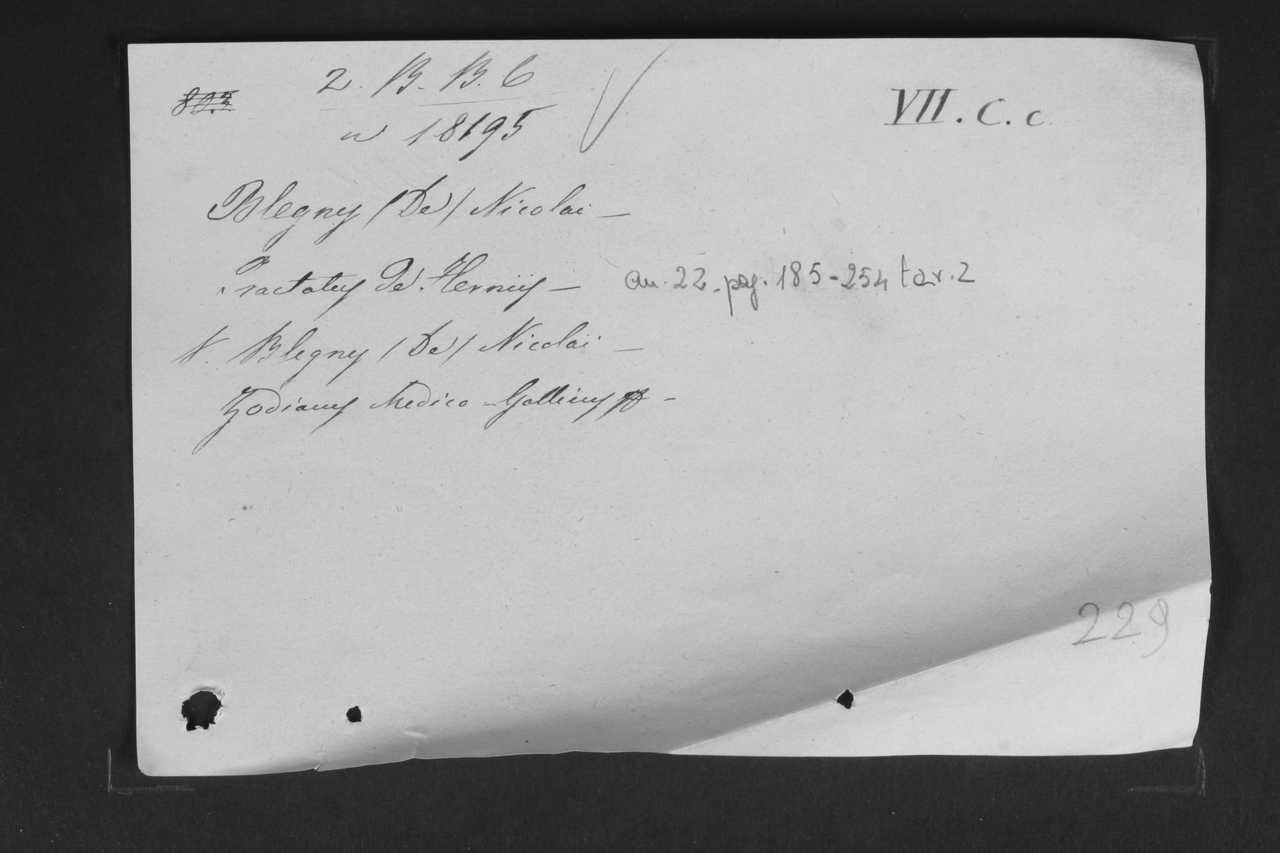 2. B. B. 6
n 18195
VII. C. c
Blegny (De) Nicolai —
Tractatus De Herniis — an. 22 - pag. 185-254 tav. 2
V. Blegny (De) Nicolai —
Zodiacus Medico-Gallicus —
229